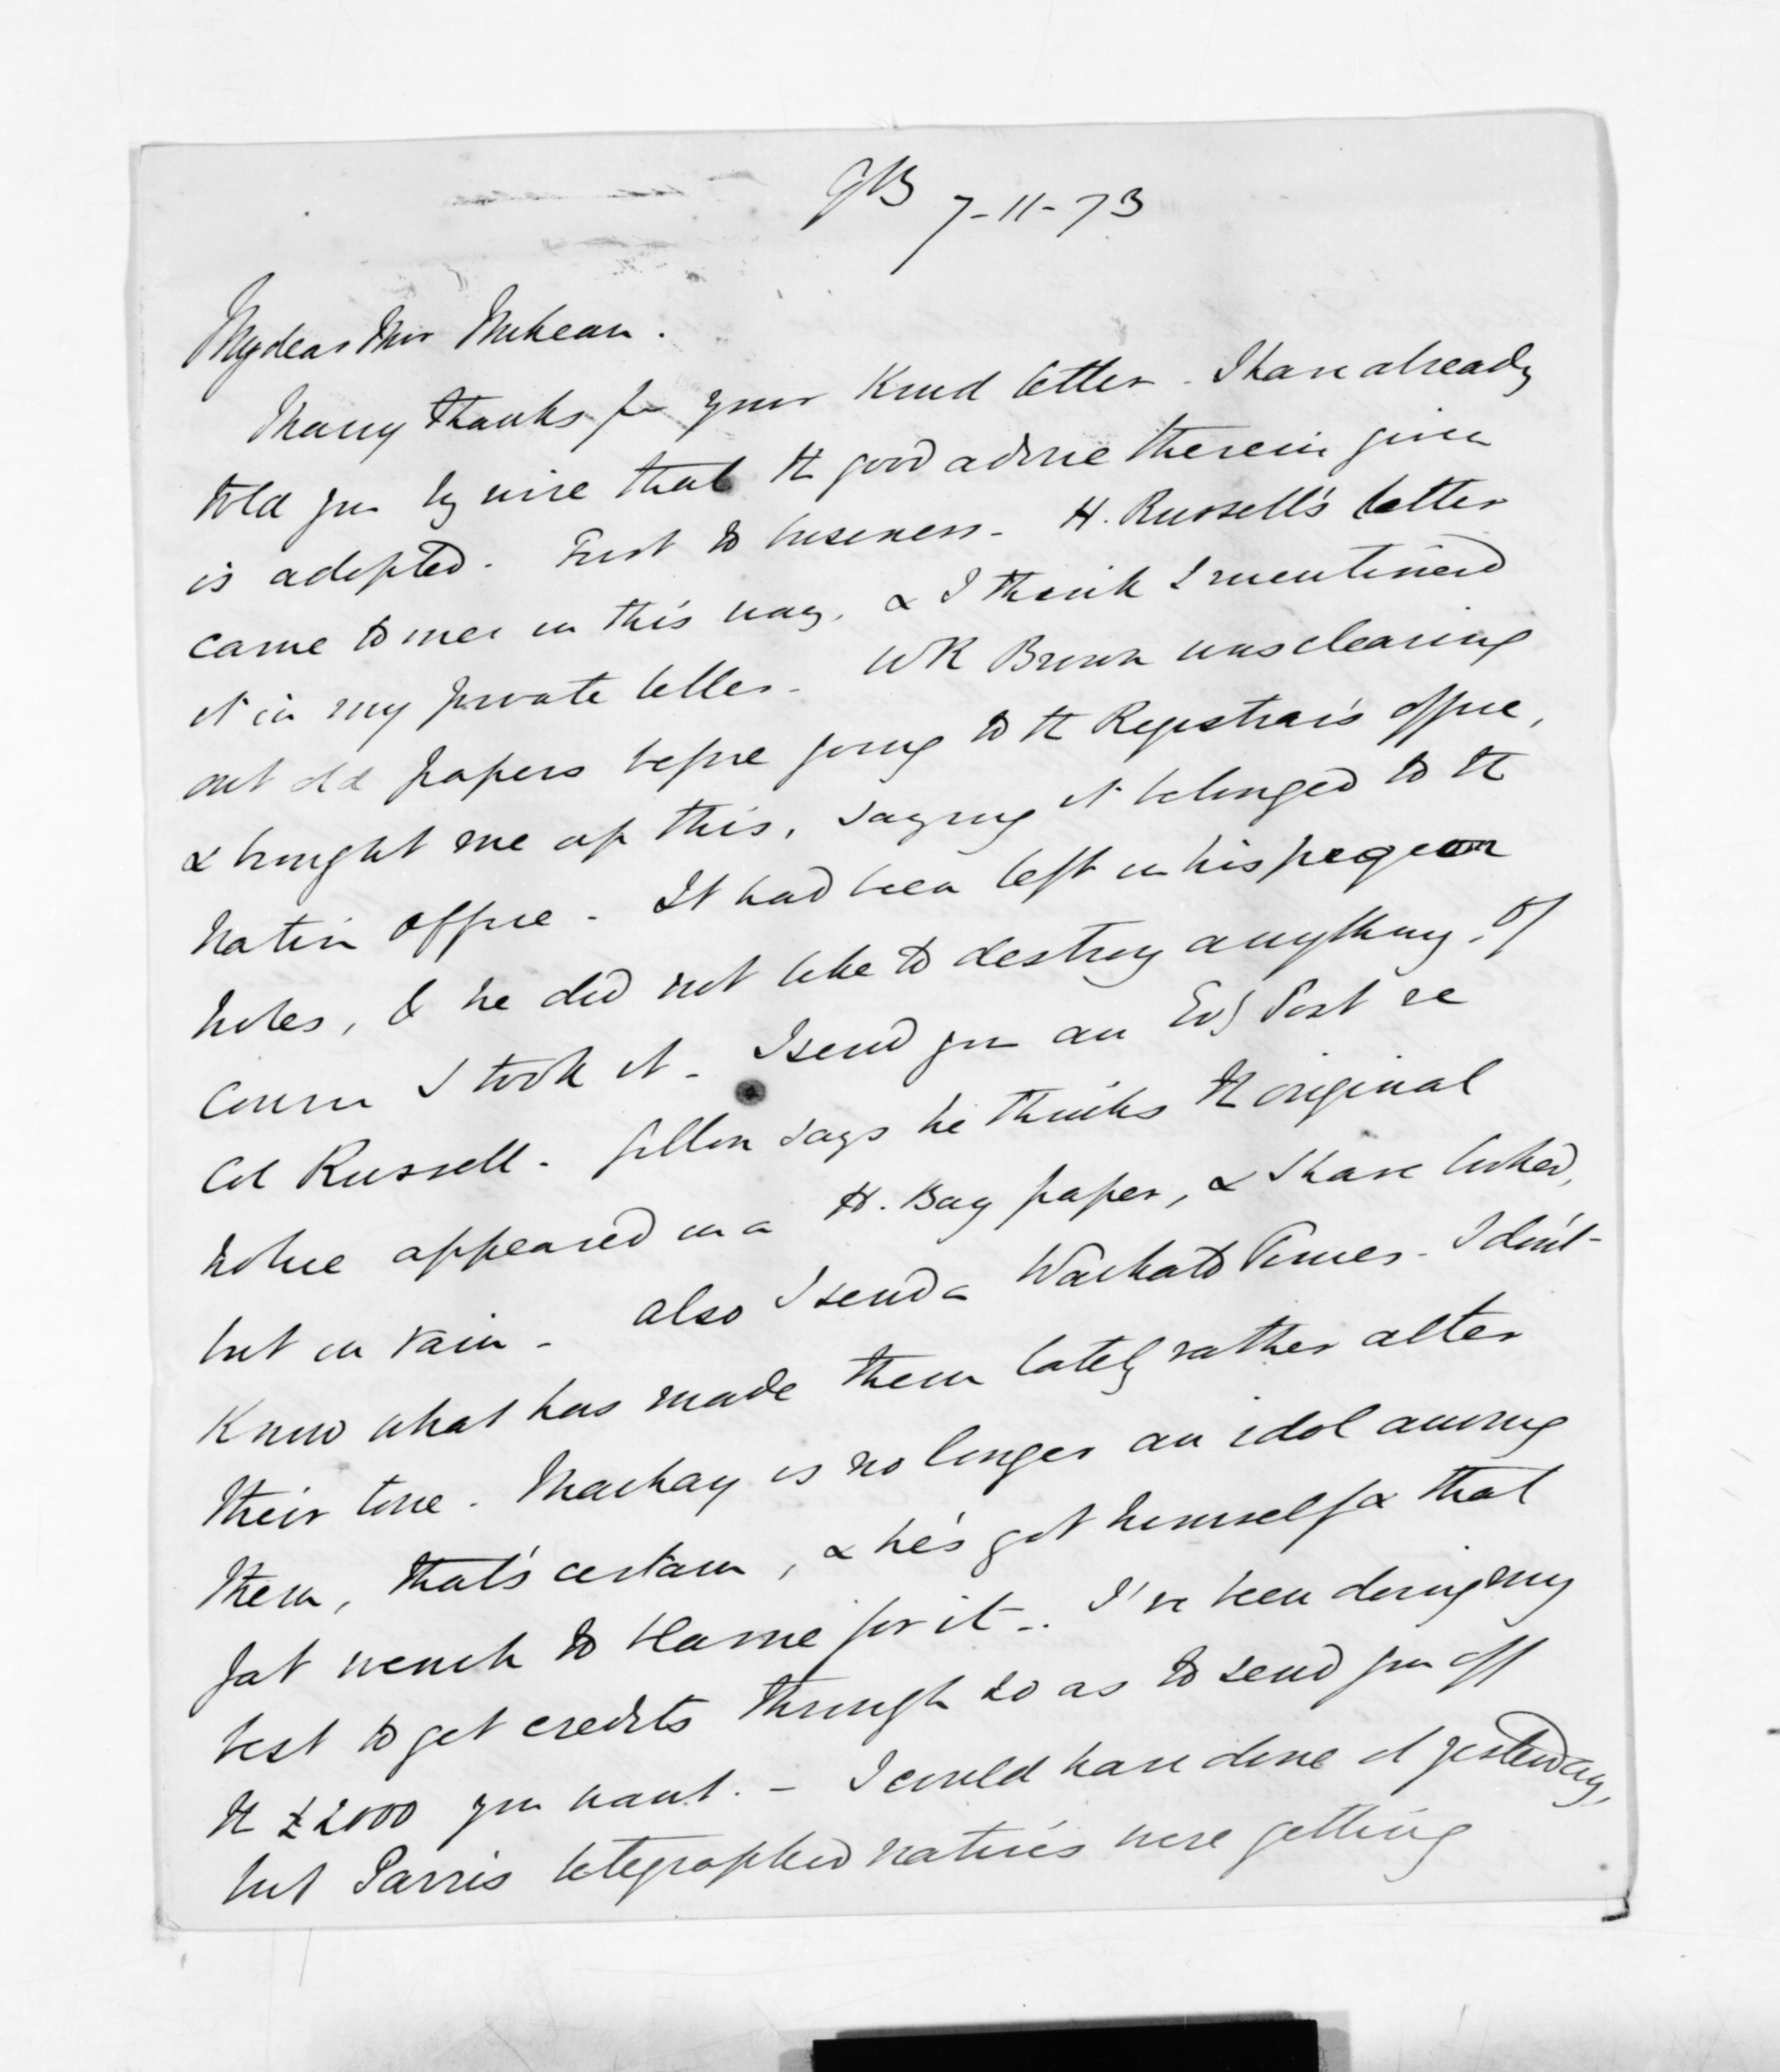 GB 7-11-73
My dear Mr McLean.
Many thanks for your kind letter - I have already
told you by wire that the good advice therein given
is adopted. First to business - H. Russell's letter
came to me in this way, & I think I mentioned
it in my private letter - WR Brown was clearing
out old papers before going to the Registrar's office,
& brought me up this, saying it belonged to the
Native Office - It had been left in his pigeon
holes, & he did not like to destroy anything, of
course I took it - I send you an Evg Post re
Col Russell - Gillon says he thinks the original
notice appeared in a H. Bay paper, & I have looked,
but in vain - also I send a Waikato Times - I don't
know what has made them lately rather alter
their tone. Mackay is no longer an idol among
them, that's certain, & he's got himself & that
fat wench to blame for it - I've been doing my
best to get credits through so as to send you off
the £2000 you want. - I could have done it yesterday,
but Parris telegraphed natives were getting